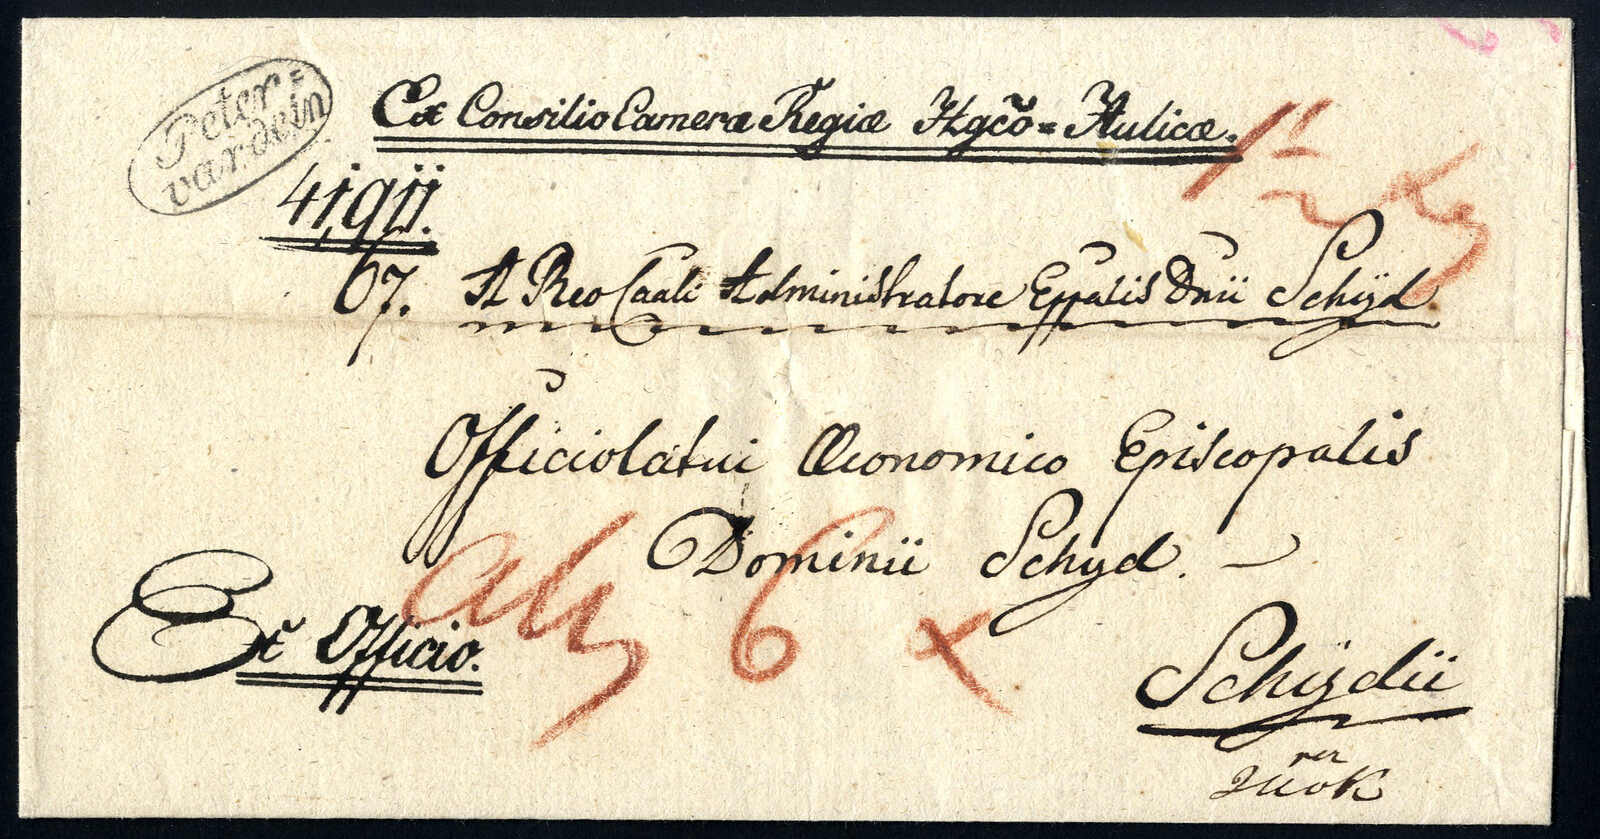 Peter=
vardein
Ex Consilio Cameræ Regiæ Hgcõ = Aulicæ.
41,911.
67. A Reo Caali Administratore Eppalis Dnii Schÿd
Officiolatui Œconomico Episcopalis
Dominii Schyd.
6 x
Ex Officio.
Schÿdii
per